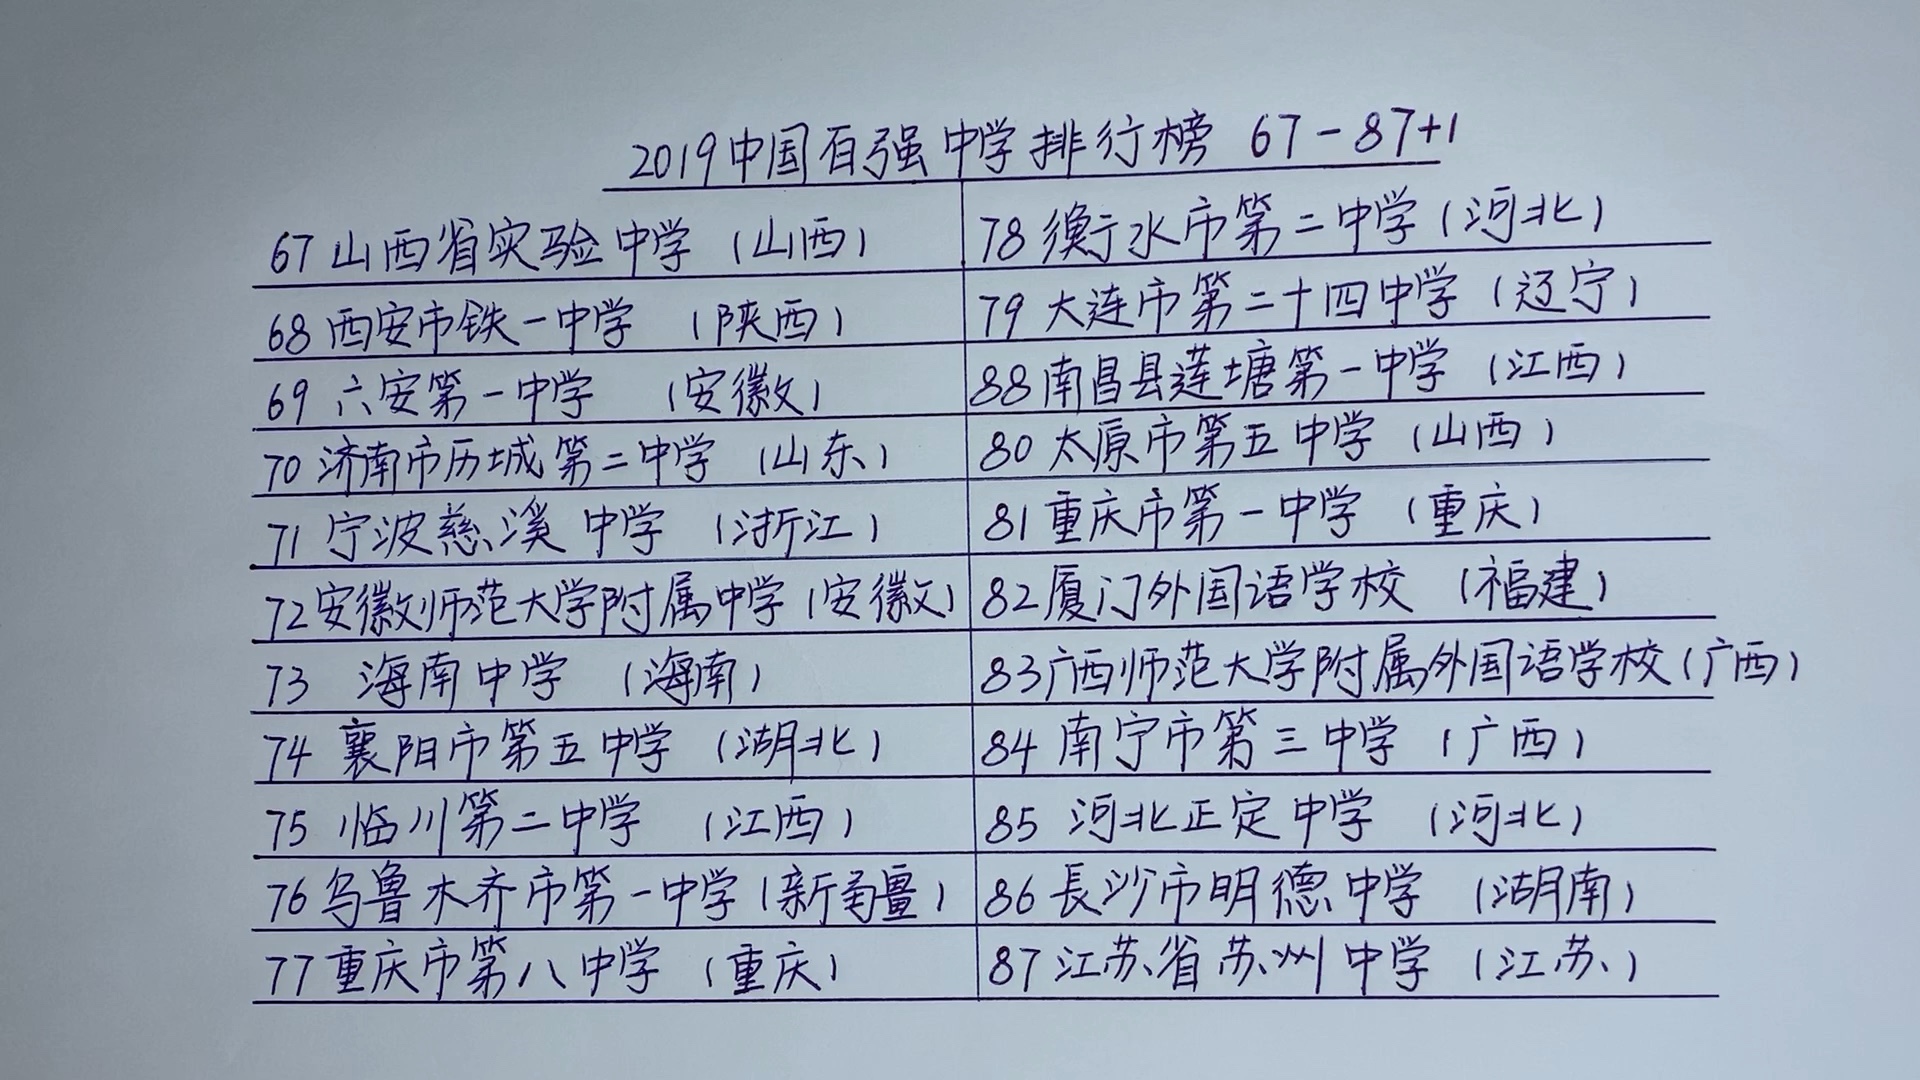 2019中国百强中学排行榜 67-87+1
67 山西省实验中学 (山西)
68 西安市铁一中学 (陕西)
69 六安第一中学 (安徽)
70 济南市历城第二中学 (山东)
71 宁波慈溪中学 (浙江)
72 安徽师范大学附属中学 (安徽)
73 海南中学 (海南)
74 襄阳市第五中学 (湖北)
75 临川第二中学 (江西)
76 乌鲁木齐市第一中学 (新疆)
77 重庆市第八中学 (重庆)
78 衡水市第二中学 (河北)
79 大连市第二十四中学 (辽宁)
88 南昌县莲塘第一中学 (江西)
80 太原市第五中学 (山西)
81 重庆市第一中学 (重庆)
82 厦门外国语学校 (福建)
83 广西师范大学附属外国语学校 (广西)
84 南宁市第三中学 (广西)
85 河北正定中学 (河北)
86 長沙市明德中学 (湖南)
87 江苏省苏州中学 (江苏)